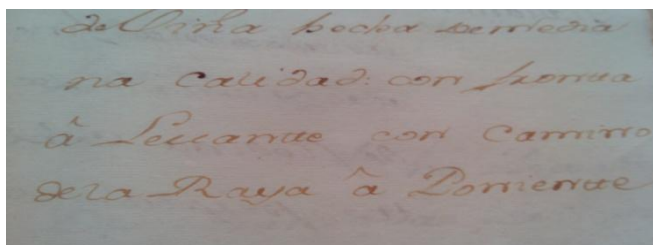 de Viña hecha de media
na calidad: con fronta
â Levante con Camino
de la Raya â Poniente